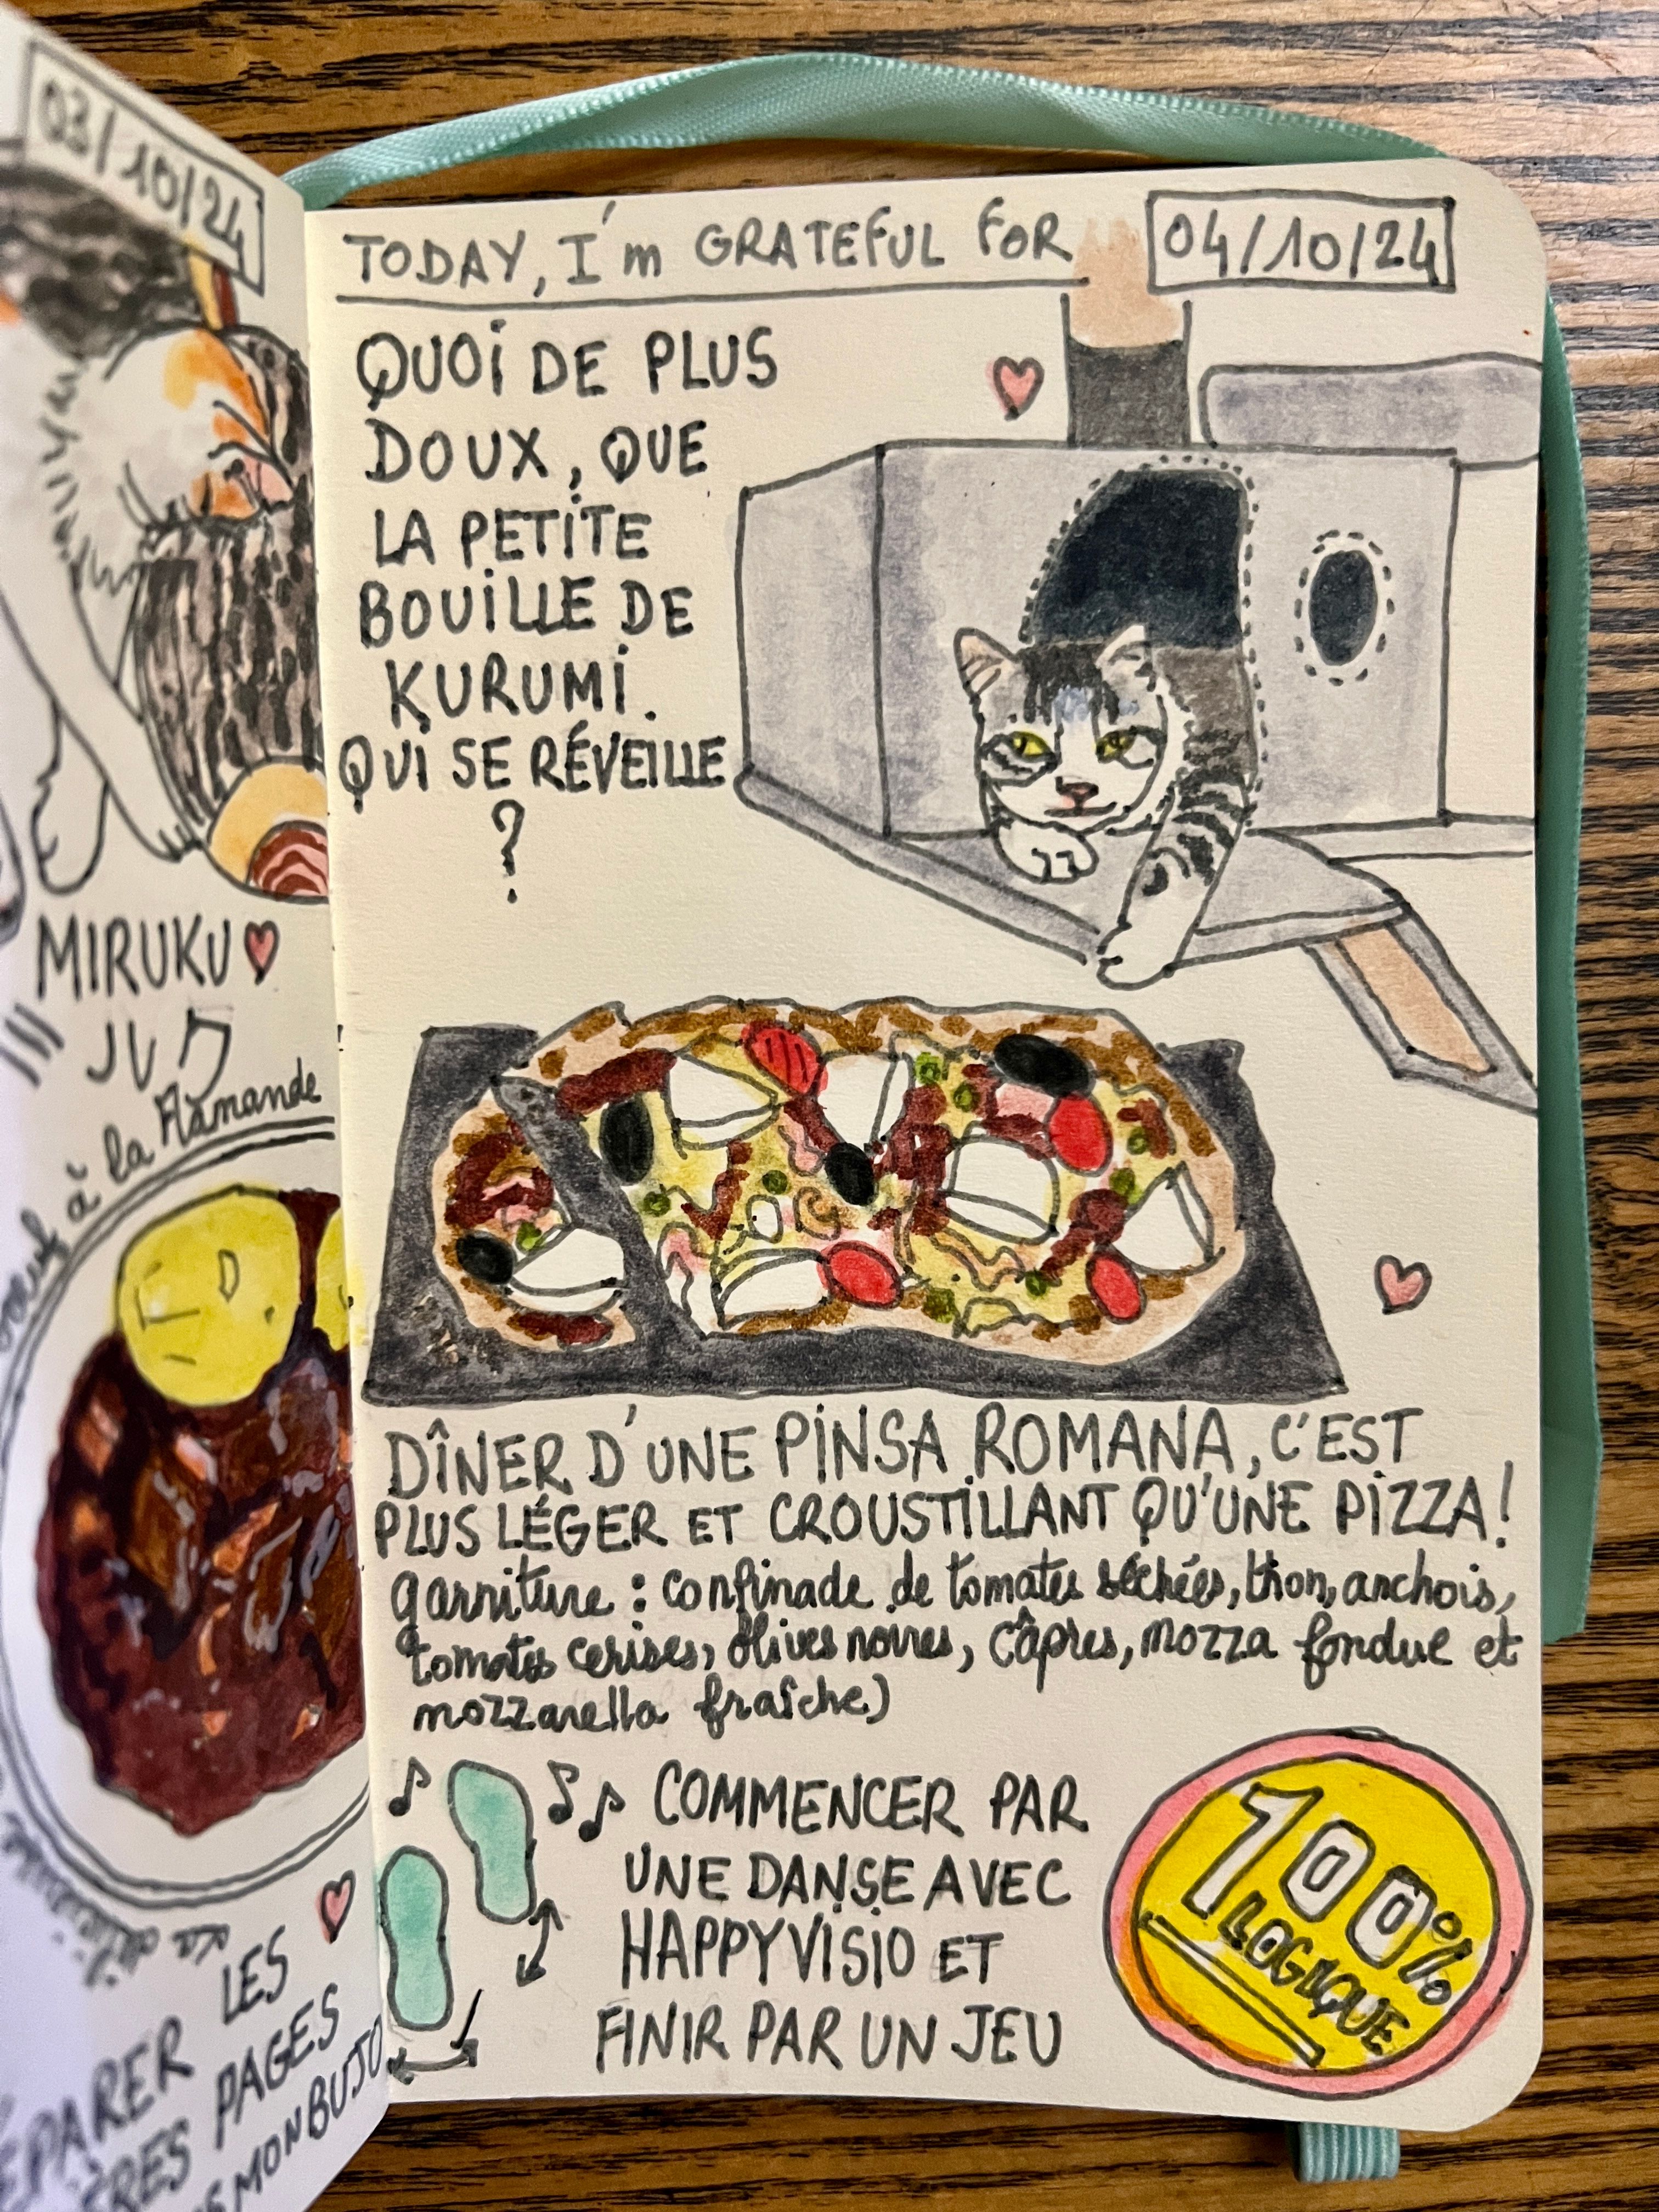 03/10/24
MIRUKU
à la Flamande
LES
PAGES
MON BUJO
TODAY, I'm GRATEFUL FOR
04/10/24
QUOI DE PLUS
DOUX, QUE
LA PETITE
BOUILLE DE
KURUMI
QUI SE RÉVEILLE
?
DÎNER D'UNE PINSA ROMANA, C'EST
PLUS LÉGER ET CROUSTILLANT QU'UNE PIZZA!
garniture : confinade de tomates séchées, thon, anchois,
tomates cerises, olives noires, câpres, mozza fondue et
mozzarella fraîche)
COMMENCER PAR
UNE DANSE AVEC
HAPPYVISIO ET
FINIR PAR UN JEU
100%
LOGIQUE